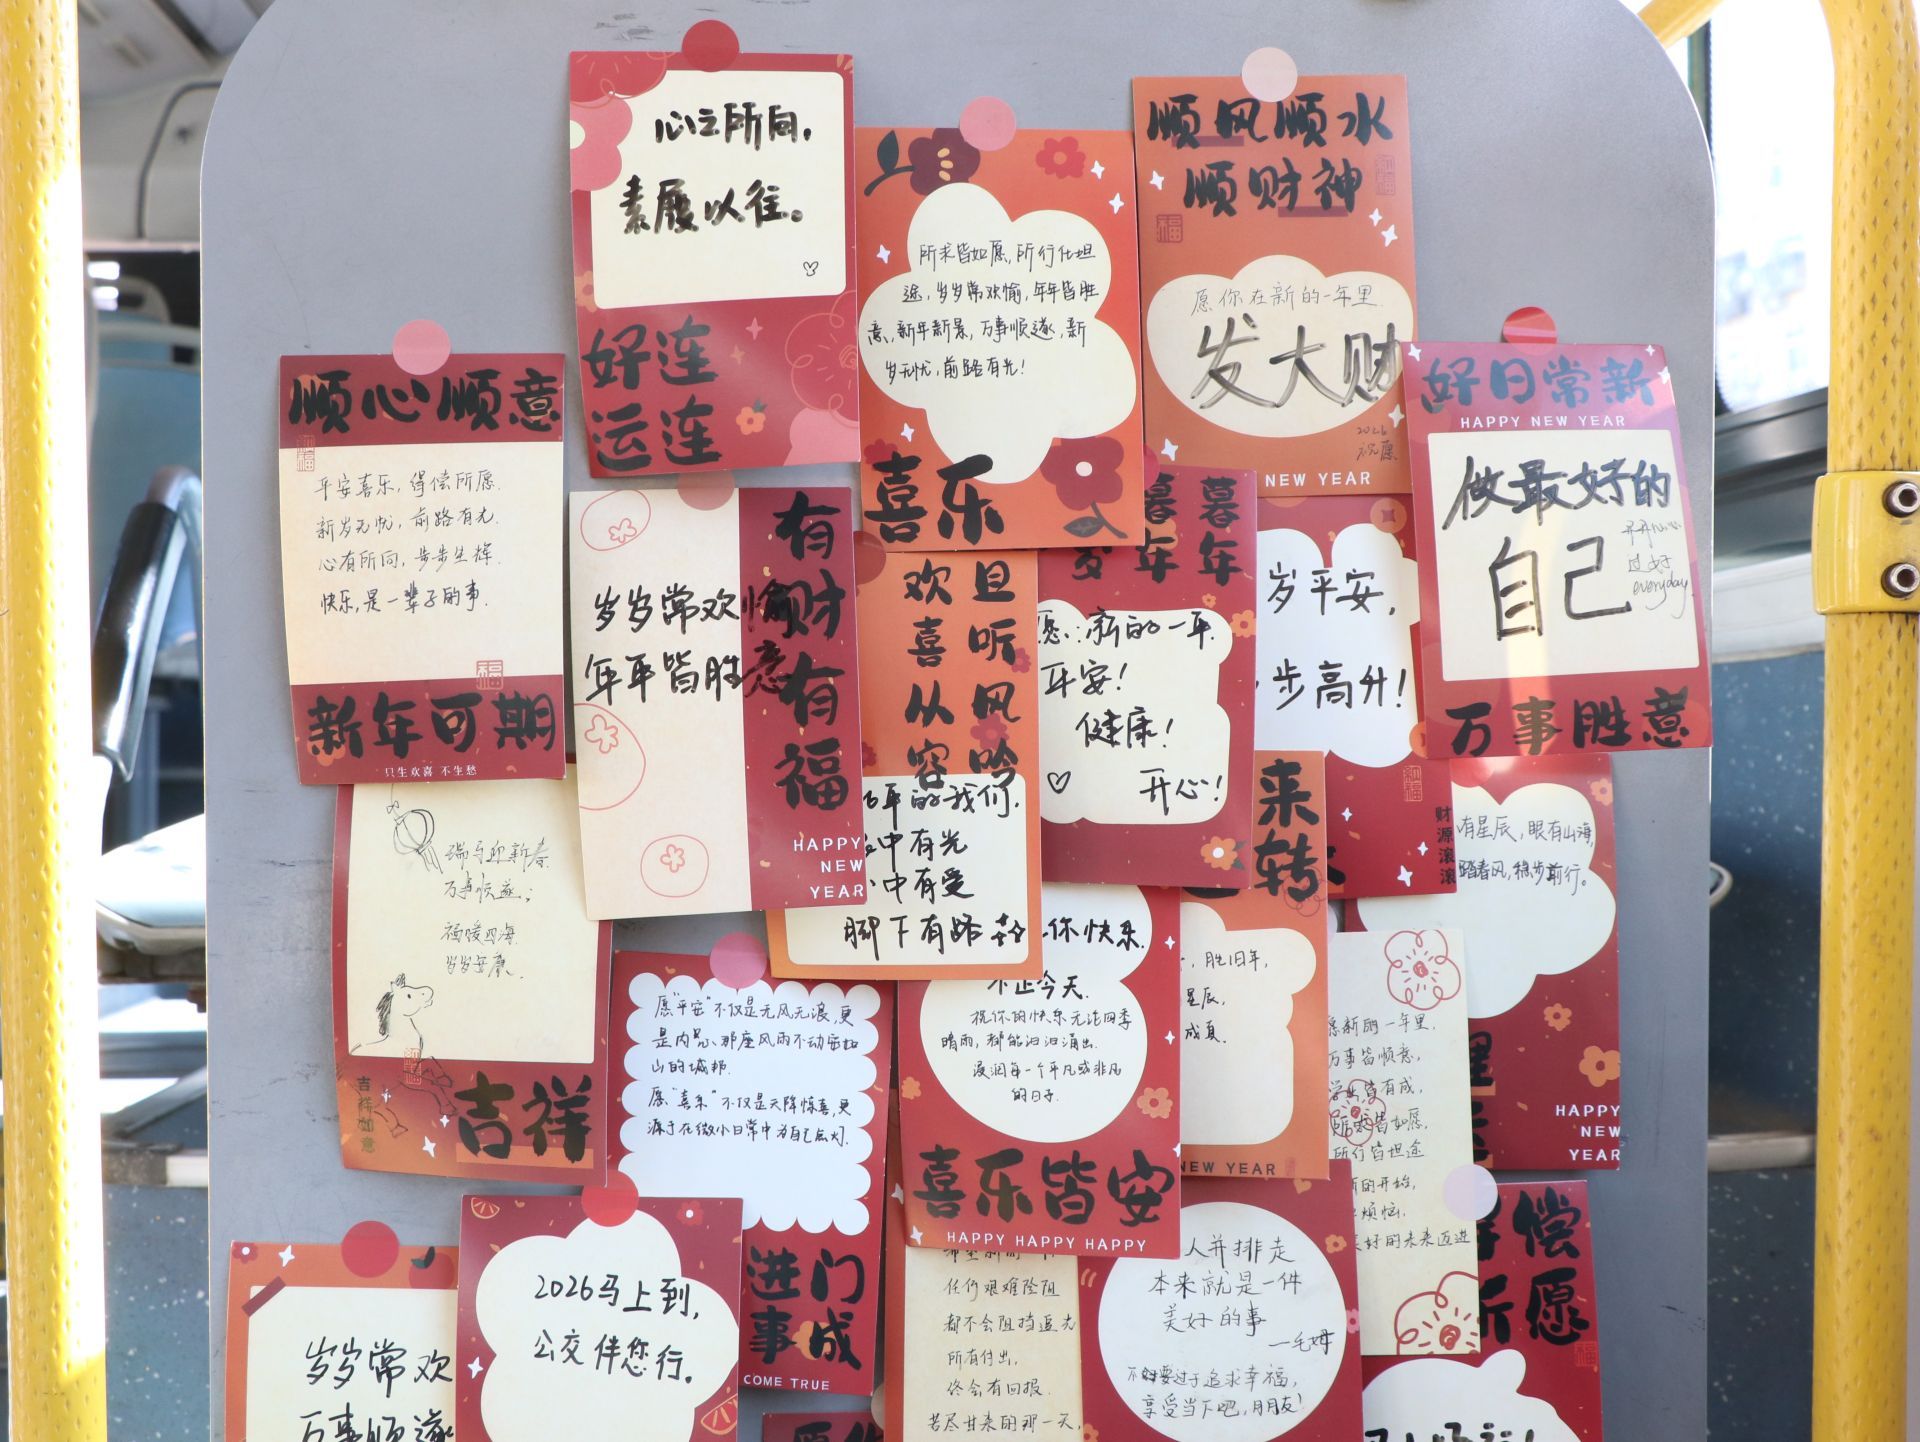 心之所向，
素履以往。
好运连连
所求皆如愿，所行化坦
途，岁岁常欢愉，年年皆胜
意，新年新景，万事顺遂，新
岁无忧，前路有光！
喜乐
顺风顺水
顺财神
愿你在新的一年里
发大财
2026
祝愿
NEW YEAR
好日常新
HAPPY NEW YEAR
做最好的
自己
过好
everyday
万事胜意
顺心顺意
平安喜乐，得偿所愿.
新岁无忧，前路有光.
心有所向，步步生辉.
快乐，是一辈子的事.
新年可期
只生欢喜 不生愁
岁岁常欢愉
年年皆胜意
有财有福
HAPPY
NEW
YEAR
且听风吟
欢喜从容
年的我们.
中有光
中有爱
脚下有路
暮暮
岁年年
愿：新的一年.
平安！
健康！
开心！
岁平安，
步高升！
财源滚滚
来
转
有星辰，眼有山海，
踏春风，稳步前行。
HAPPY
NEW
YEAR
瑞马迎新春
万事顺遂；
福暖四海
岁岁安康.
吉祥如意
吉祥
愿“平安”不仅是无风无浪，更
是内心那座风雨不动安如
山的城邦.
愿“喜乐”不仅是天降惊喜，更
源于在微小日常中为自己点灯.
进门
事成
COME TRUE
你快乐.
不止今天.
祝你的快乐无论四季
晴雨，都能汩汩涌出.
浸润每一个平凡或非凡
的日子.
喜乐皆安
HAPPY HAPPY HAPPY
，胜旧年，
星辰，
成夏.
NEW YEAR
愿新的一年里.
万事皆顺意，
皆有成，
所求皆如愿，
所行皆坦途
的开始，
烦恼，
美好的未来迈进
得偿
所愿
岁岁常欢
万事顺遂
2026马上到，
公交伴您行。
任何艰难险阻
都不会阻挡追光
所有付出，
终会有回报.
苦尽甘来的那一天，
人并排走
本来就是一件
美好的事
不要过于追求幸福，
享受当下吧，朋友！